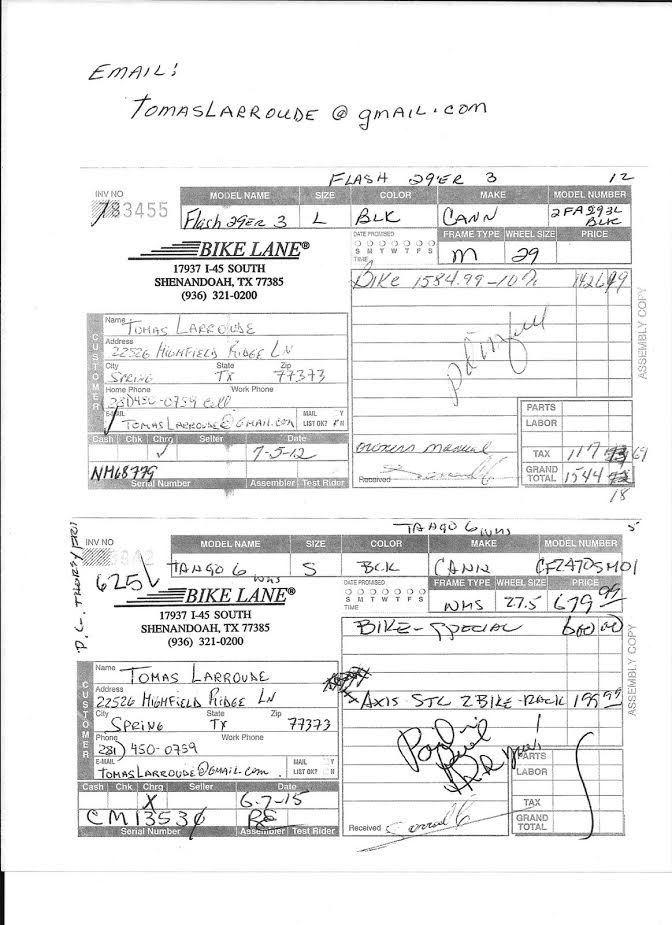 EMAIL:
TOMASLARROUDE @ gmail.com
FLASH 29'ER 3 12
INV NO MODEL NAME SIZE COLOR MAKE MODEL NUMBER
783455 Flash 29ER 3 L BLK CANN 2FA293L BLK
DATE PROMISED FRAME TYPE WHEEL SIZE PRICE
S M T W T F S M 29
TIME
BIKE LANE®
17937 I-45 SOUTH
SHENANDOAH, TX 77385
(936) 321-0200
Bike 1584.99-10%
pd in full
ASSEMBLY COPY
CUSTOMER
Name TOMAS LARROUDE
Address
22526 HIGHFIELD RIDGE LN
City State Zip
SPRING TX 77373
Home Phone Work Phone
450-0759 Cell
E-MAIL MAIL Y
TOMASLARROUDE@GMAIL.COM LIST OK? N
PARTS
LABOR
TAX
GRAND TOTAL 1544
18
Cash Chk Chrg Seller Date
7-5-12
owners manual
Received
NM68779
Serial Number Assembler Test Rider
TANGO 6 WMS
INV NO MODEL NAME SIZE COLOR MAKE MODEL NUMBER
TANGO 6 WMS S BLK CANN
6251
DATE PROMISED FRAME TYPE WHEEL SIZE PRICE
S M T W T F S WMS 27.5 679.99
TIME
BIKE LANE®
17937 I-45 SOUTH
SHENANDOAH, TX 77385
(936) 321-0200
BIKE-SPECIAL 600.00
AXIS STL 2 BIKE-RACK 199.99
Paid in
ASSEMBLY COPY
CUSTOMER
Name TOMAS LARROUDE
Address
22526 HIGHFIELD RIDGE LN
City State Zip
SPRING TX 77373
Phone Work Phone
(281) 450-0759
E-MAIL MAIL Y
TOMASLARROUDE@GMAIL.COM LIST OK? N
PARTS
LABOR
TAX
GRAND TOTAL
Cash Chk Chrg Seller Date
X 6-7-15
CM13530
Received
Serial Number Assembler Test Rider